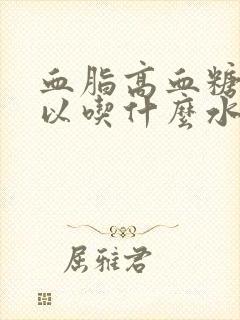 血脂高血糖
以喫什麼水
屈雅君